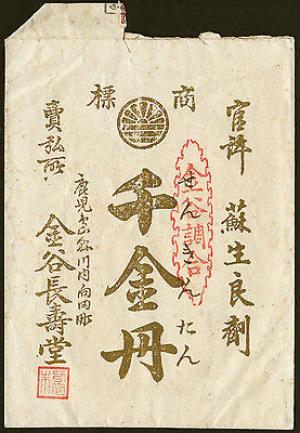 官許 蘇生良劑
商標
千金丹
せんきんたん
金谷調合
鹿児島縣川内向田町
賣弘所 金谷長壽堂